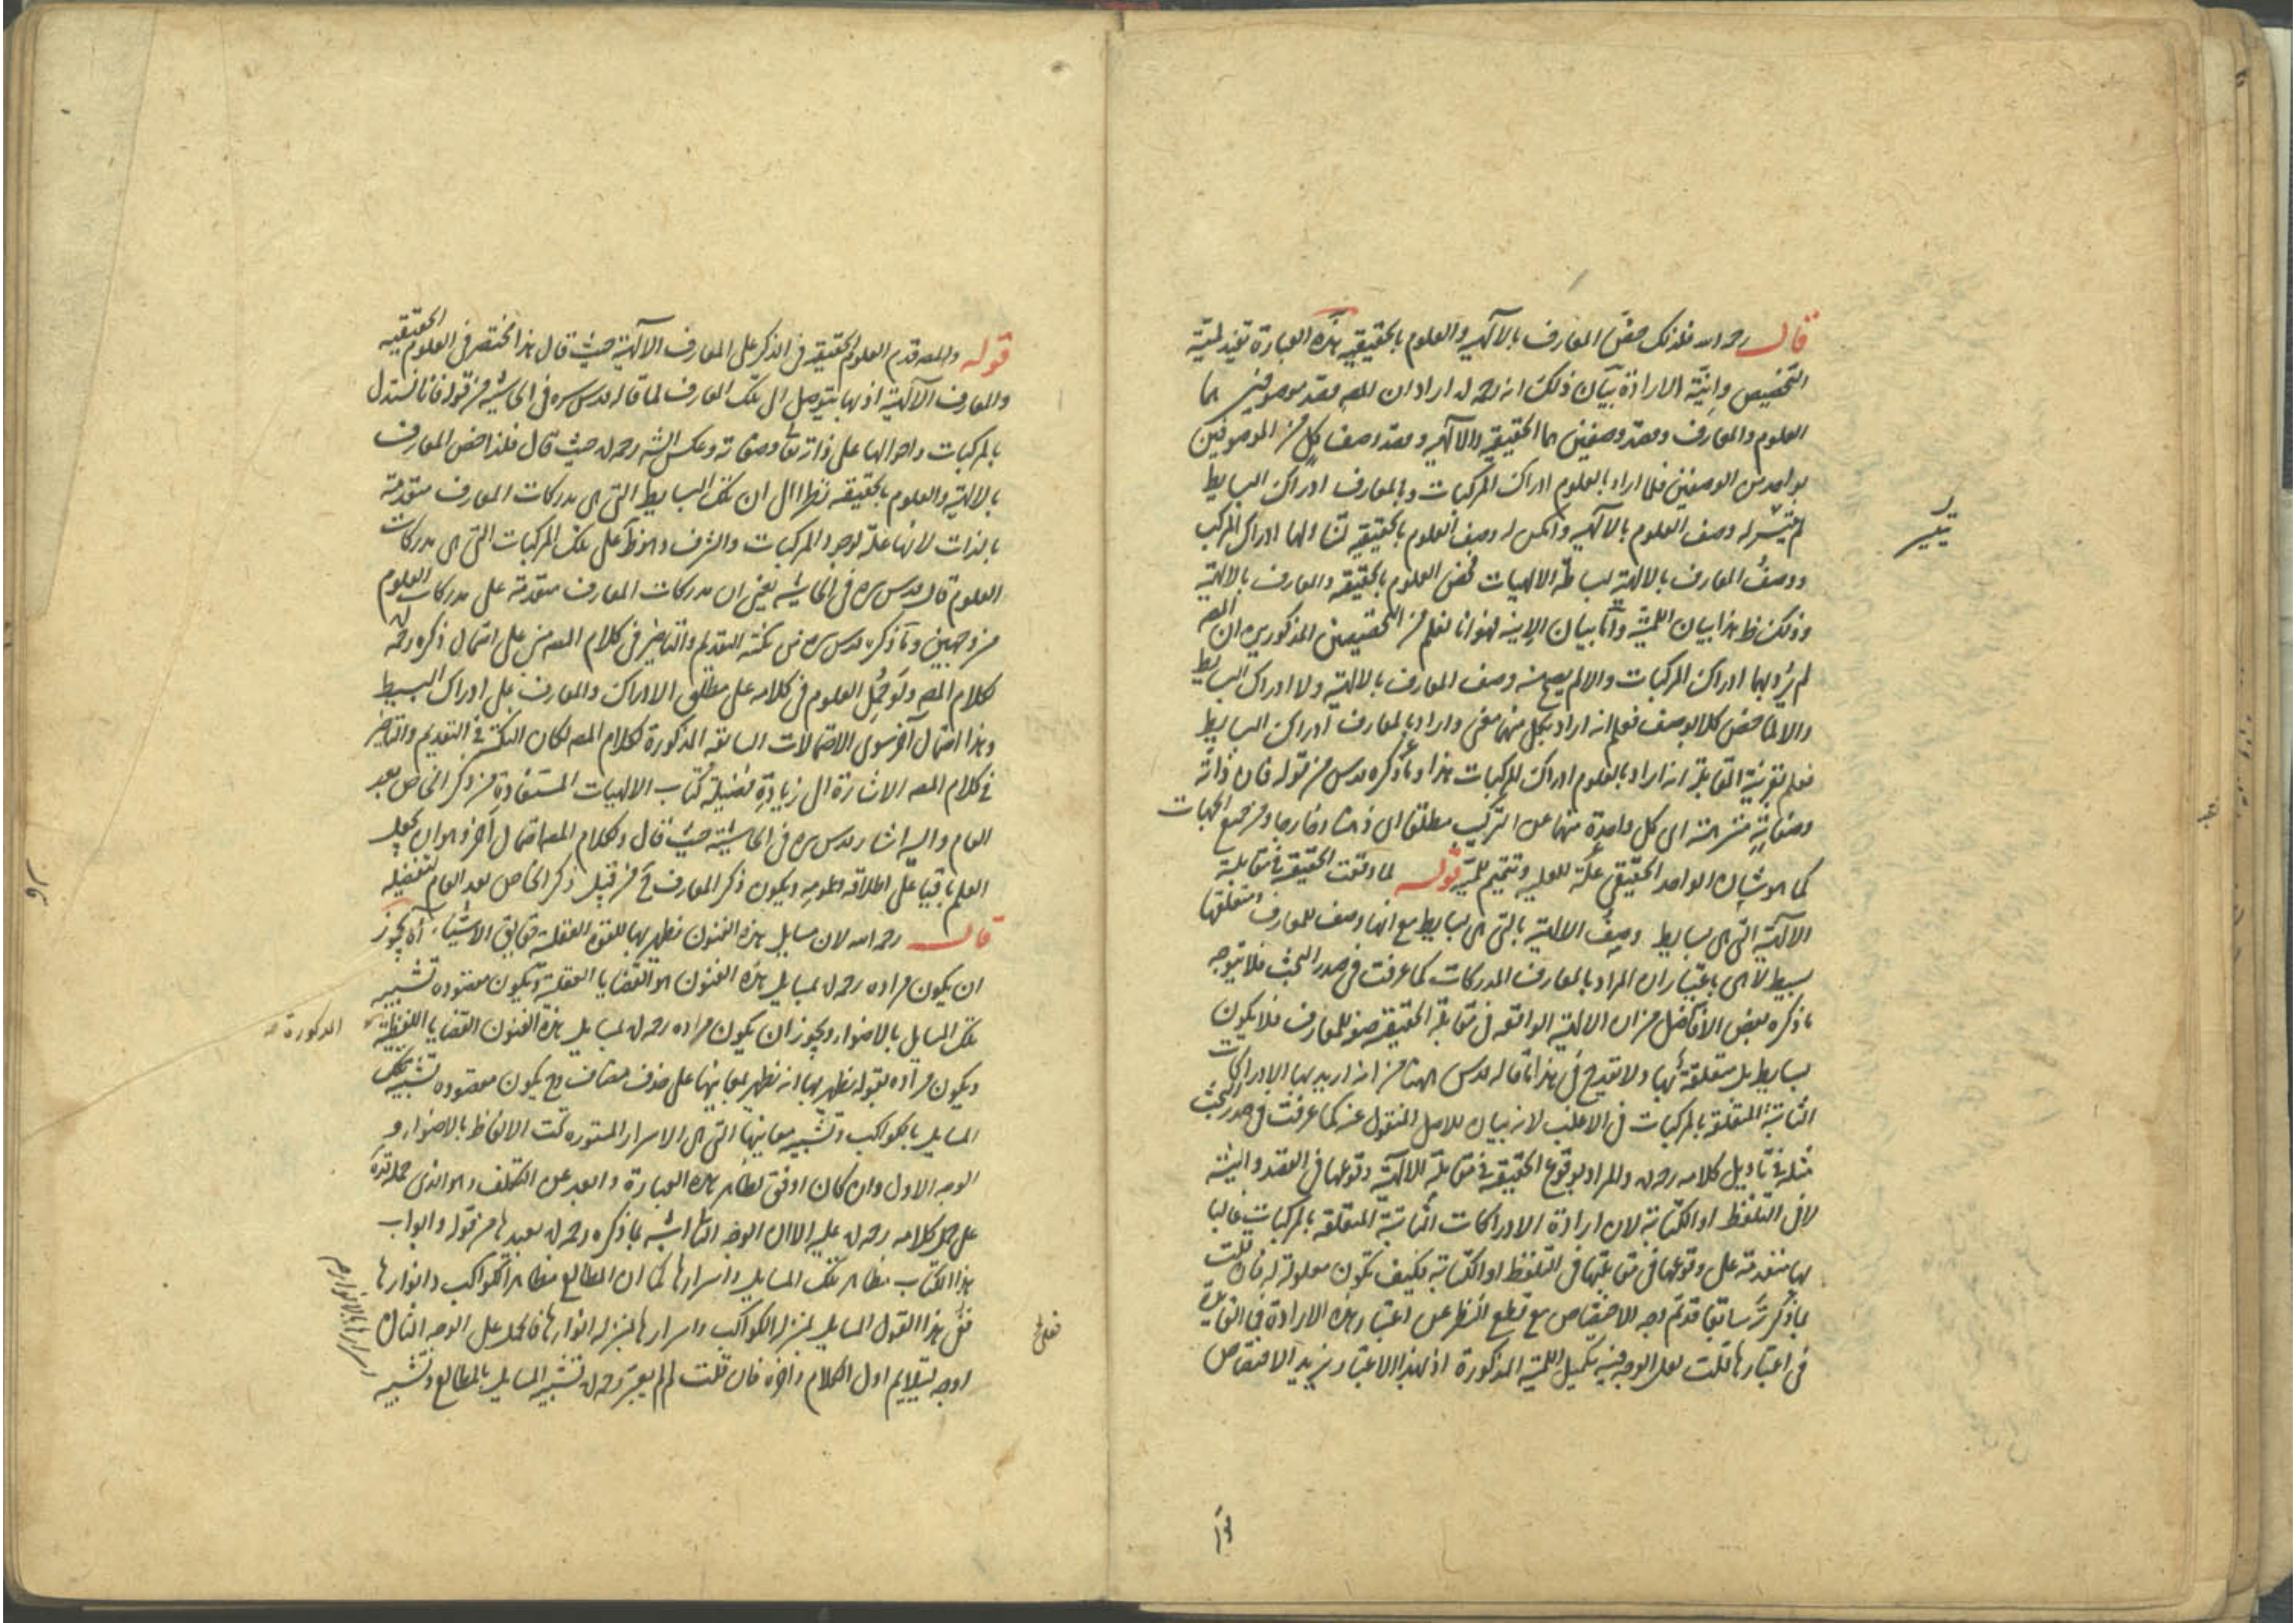 قال رحمه الله فلذلك خصّ المعارف بالالهيه والعلوم بالحقيقيه هذه العبارة تفيد لميّة
التخصيص وإنيّة الارادة بيان ذلك انه رحمه الله اراد ان المصـ قصد موصوفين هما
العلوم والمعارف وقصد وصفين هما الحقيقيه والالهيه وقصد وصف كل من الموصوفين
بواحد من الوصفين فلما اراد بالعلوم ادراك المركبات وبالمعارف ادراك البسايط
لم يتيسر له وصف العلوم بالالهيه وامكن له وصف العلوم بالحقيقيه لتناولها ادراك المركب
ووصف المعارف بالالهيه لبساطة الالهيات فخص العلوم بالحقيقيه والمعارف بالالهية
وذلك ظ هذا بيان اللمية واما بيان الإنيه فهو انا نعلم من التخصيصين المذكورين ان المصـ
لم يرد بهما ادراك المركبات والا لم يصح منه وصف المعارف بالالهيه ولا ادراك البسايط
والا لما خص كلا بوصف فعلم انه اراد بكل منهما معنى واراد بالمعارف ادراك البسايط
فعلم بقرينة المقابلة انه اراد بالعلوم ادراك المركبات هذا وما ذكره قدس من قوله فان ذاته
وصفاته منزهة اى كل واحدة منهما عن التركيب مطلقا اى ذهنا وخارجا ومن جميع الجهات
كما هو شان الواحد الحقيقى علّة للعليه وتتميم للميّة قوله لما وقعت الحقيقيه فى مقابلة
الالهية التى هى بسايط وصف الالهية بالتى هى بسايط مع انها وصف للمعارف ومتعلقها
بسيط لا هى باعتبار ان المراد بالمعارف المدركات كما عرفت فى صدر البحث فلا يتوجه
ما ذكره بعض الافاضل من ان الالهية الواقعه فى مقابلة الحقيقيه صفة للمعارف فلا يكون
بسايط بل متعلقة بها ولا يقدح فى هذا ما قاله قدس الله من انه اريد بها الادراكات
الثابتة المتعلقة بالمركبات فى الاغلب لانه بيان للاصل المنقول عنه كما عرفت فى صدر البحث
مثله فى تاويل كلامه رحمه الله والمراد بوقوع الحقيقيه فى مقابلة الالهية وقوعها فى القصد والنية
لا فى التلفظ او الكتابة لان ارادة الادراكات الثابتة المتعلقة بالمركبات غالبا
بها متقدمة على وقوعها فى مقابلتها فى التلفظ او الكتابة فكيف تكون معلولة له فان قلت
بما ذكر سابقا قد تم وجه الاختصاص مع قطع النظر عن اعتبار هذه الارادة فى المقابلة
فى اعتبارها قلت لعل الوجه فيه تكميل اللمية المذكورة اذ بهذا الاعتبار يزيد الاختصاص
قوله والمصـ قدم العلوم الحقيقيه فى الذكر على المعارف الالهية حيث قال هذا مختصر فى العلوم الحقيقيه
والمعارف الالهية اذ بها يتوصل الى تلك المعارف لما قاله قدس سره فى الحاشيه من قوله فانا نستدل
بالمركبات واحوالها على ذاته تعالى وصفاته وعكس الشـ رحمه الله حيث قال فلذا خص المعارف
بالالهية والعلوم بالحقيقيه نظرا الى ان تلك البسايط التى هى مدركات المعارف متقدمة
بالذات لانها علة لوجود المركبات والشرف وهو ظ على تلك المركبات التى هى مدركات
العلوم قال قدس سره فى الحاشيه يعنى ان مدركات المعارف متقدمة على مدركات العلوم
من وجهين وما ذكره قدس سره من نكتة التقديم والتاخير فى كلام المصـ مبنى على احتمال ذكره رحمه الله
لكلام المصـ ولو حُمل العلوم فى كلامه على مطلق الادراك والمعارف على ادراك البسيط
وهذا احتمال آخر سوى الاحتمالات السابقه المذكورة لكلام المصـ لكان النكتة فى التقديم والتاخير
فى كلام المصـ الاشارة الى زيادة فضيلة كتاب الالهيات المستفادة من ذكر الخاص بعد
العام واليه اشار قدس سره فى الحاشية حيث قال ولكلام المصـ احتمال آخر وهو ان يجعل
العلم باقيا على اطلاقه وعمومه ويكون ذكر المعارف ح من قبيل ذكر الخاص بعد العام لتفضيله
قال رحمه الله لان مسايل هذه الفنون تظهر بها للقوة العقلية حقايق الاشياء آه يجوز
ان يكون مراده رحمه الله بمسايل هذه الفنون هو القضايا العقلية ويكون مقصوده تشبيه
تلك المسايل بالاضواء ويجوز ان يكون مراده رحمه الله بمسايل هذه الفنون القضايا اللفظية
المذكورة صح
ويكون مراده بقوله تظهر بها انه تظهر بمعانيها على حذف مضاف وح يكون مقصوده تشبيه تلك
المسايل بالكواكب وتشبيه معانيها التى هى الاسرار المستوره تحت الالفاظ بالاضواء و
الوجه الاول وان كان اوفق بظاهر هذه العبارة وابعد عن التكلف وهو الذى حمله قدس سره
على حمل كلامه رحمه الله عليه الا ان الوجه الثانى اشبه بما ذكره رحمه الله بعيدها من قوله وابواب
هذا الكتاب مظاهر تلك المسايل واسرارها كما ان المطالع مظاهر الكواكب وانوارها
ففى هذا القول المسايل بمنزلة الكواكب واسرارها بمنزلة انوارها فالحمل على الوجه الثانى
اوجه ليتلايم اول الكلام وآخره فان قلت لم لم يعتبر رحمه الله تشبيه المسايل بالمطالع وتشبيه
اسرارها بالانوار صح